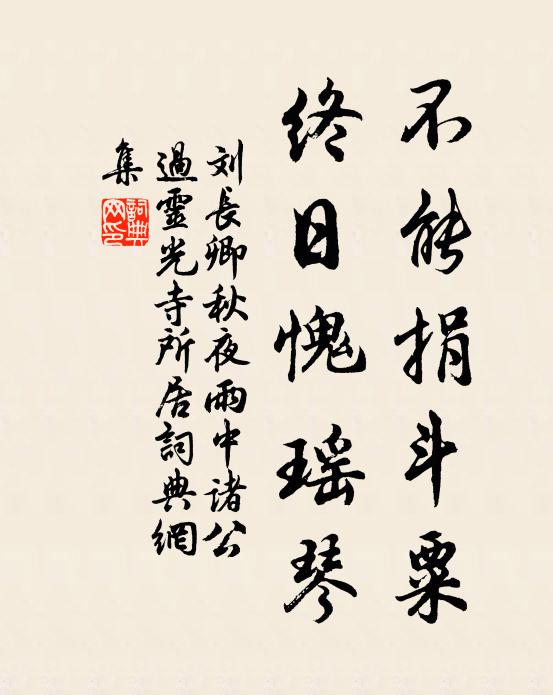 不能捐斗粟
终日愧瑶琴
刘長卿秋夜雨中諸公
過靈光寺所居詞典網
集
詞典
网印